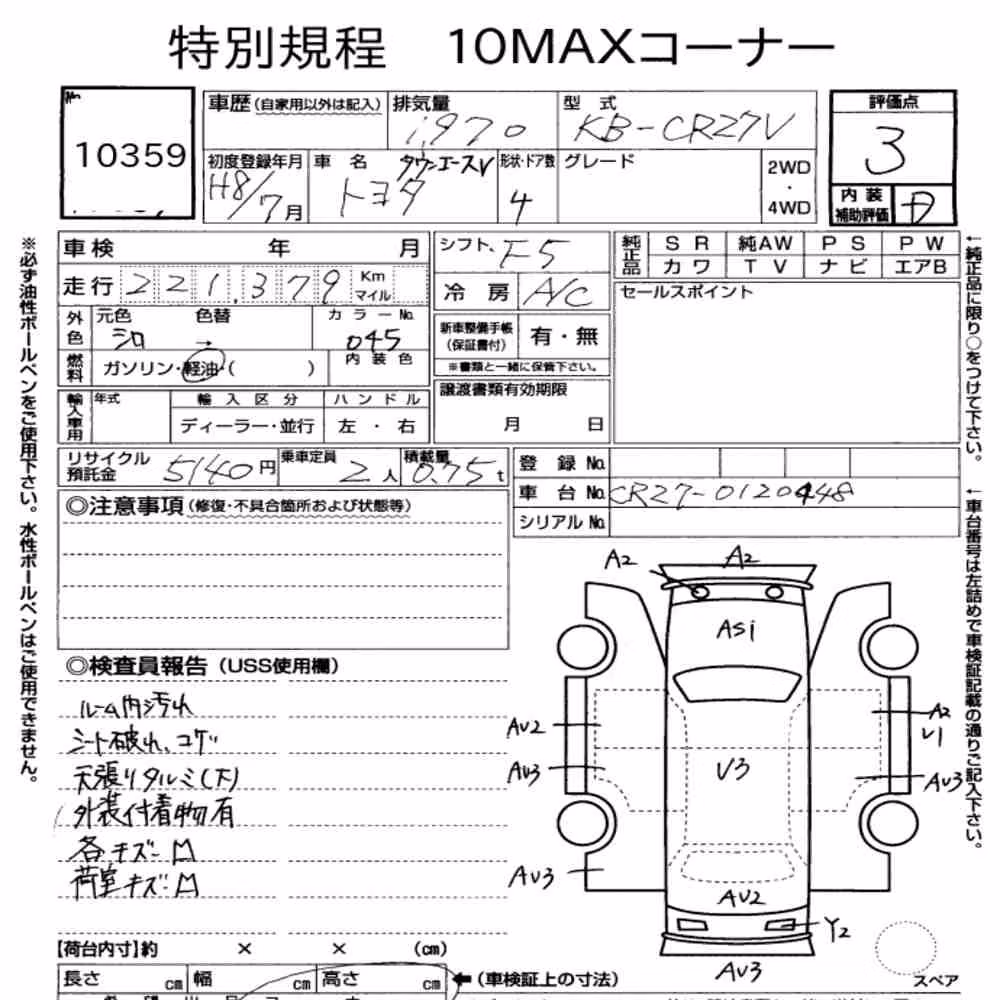 特別規程　10MAXコーナー
№
10359
車歴(自家用以外は記入)
排気量
1,970
型　式
KB-CR27V
評価点
3
初度登録年月
H8/7月
車　名
タウンエースV
トヨタ
形状・ドア数
4
グレード
2WD
・
4WD
内　装
補助評価
D
車検　年　月
シフト F5
純正品
SR　純AW　PS　PW
カワ　TV　ナビ　エアB
走行 221,379 Km
マイル
冷　房 A/C
セールスポイント
外色
元色　色替　カラーNo.
シロ　→　045
新車整備手帳
(保証書付)
有・無
燃料
ガソリン・軽油・(　)
内　装　色
※書類と一緒に保管下さい。
輸入車用
年式
輸　入　区　分
ハ　ン　ド　ル
ディーラー・並行
左　・　右
譲渡書類有効期限
月　日
リサイクル
預託金
5140円
乗車定員
2人
積載量
0.75t
登　録　No.
車　台　No. CR27-0120448
シリアルNo.
◎注意事項(修復・不具合箇所および状態等)
◎検査員報告（USS使用欄）
ルーム内汚れ
シート破れ、コゲ
天張りタルミ(大)
外装付着物有
各キズ凹
荷室キズ凹
A2
A2
AS1
AU2
A2
U1
AU3
V3
AU3
AU3
AU2
Y2
AU3
スペア
【荷台内寸】約　×　×　(cm)
長さ　cm　幅　cm　高さ　cm
←(車検証上の寸法)
※必ず油性ボールペンをご使用下さい。水性ボールペンはご使用できません。
←純正品に限り○をつけて下さい。
←車台番号は左詰めで車検証記載の通りご記入下さい。